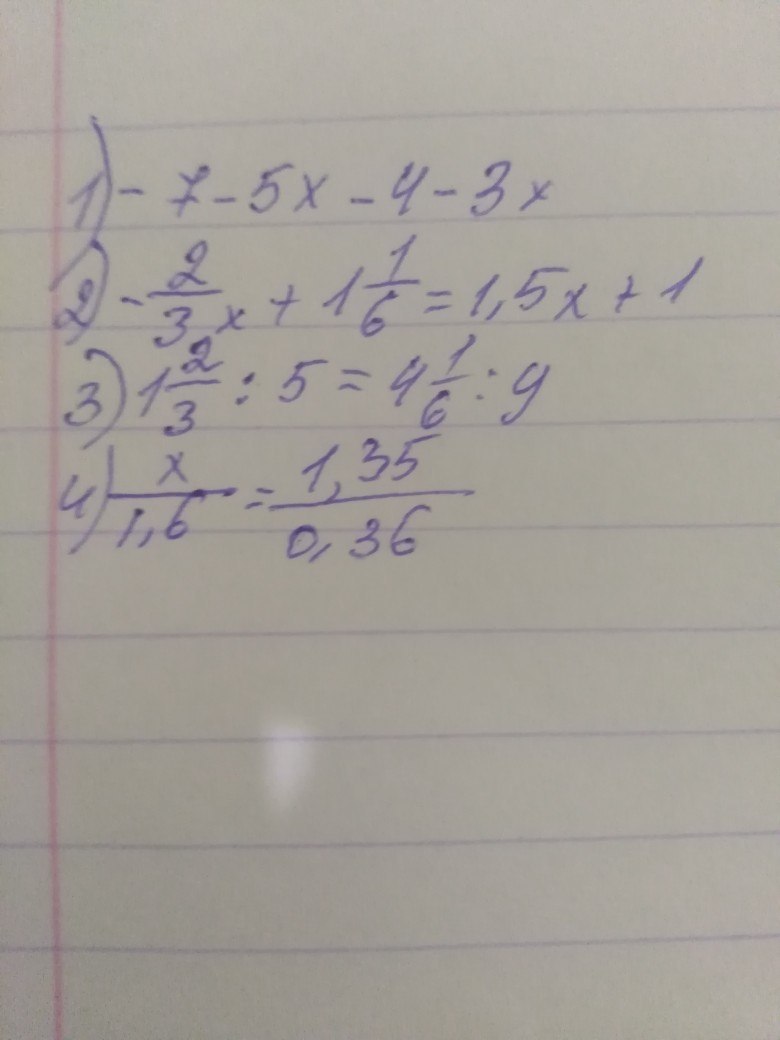 1) - 7 - 5x - 4 - 3x
2) - 2/3 x + 1 1/6 = 1,5x + 1
3) 1 2/3 : 5 = 4 1/6 : y
4) x/1,6 = 1,35/0,36